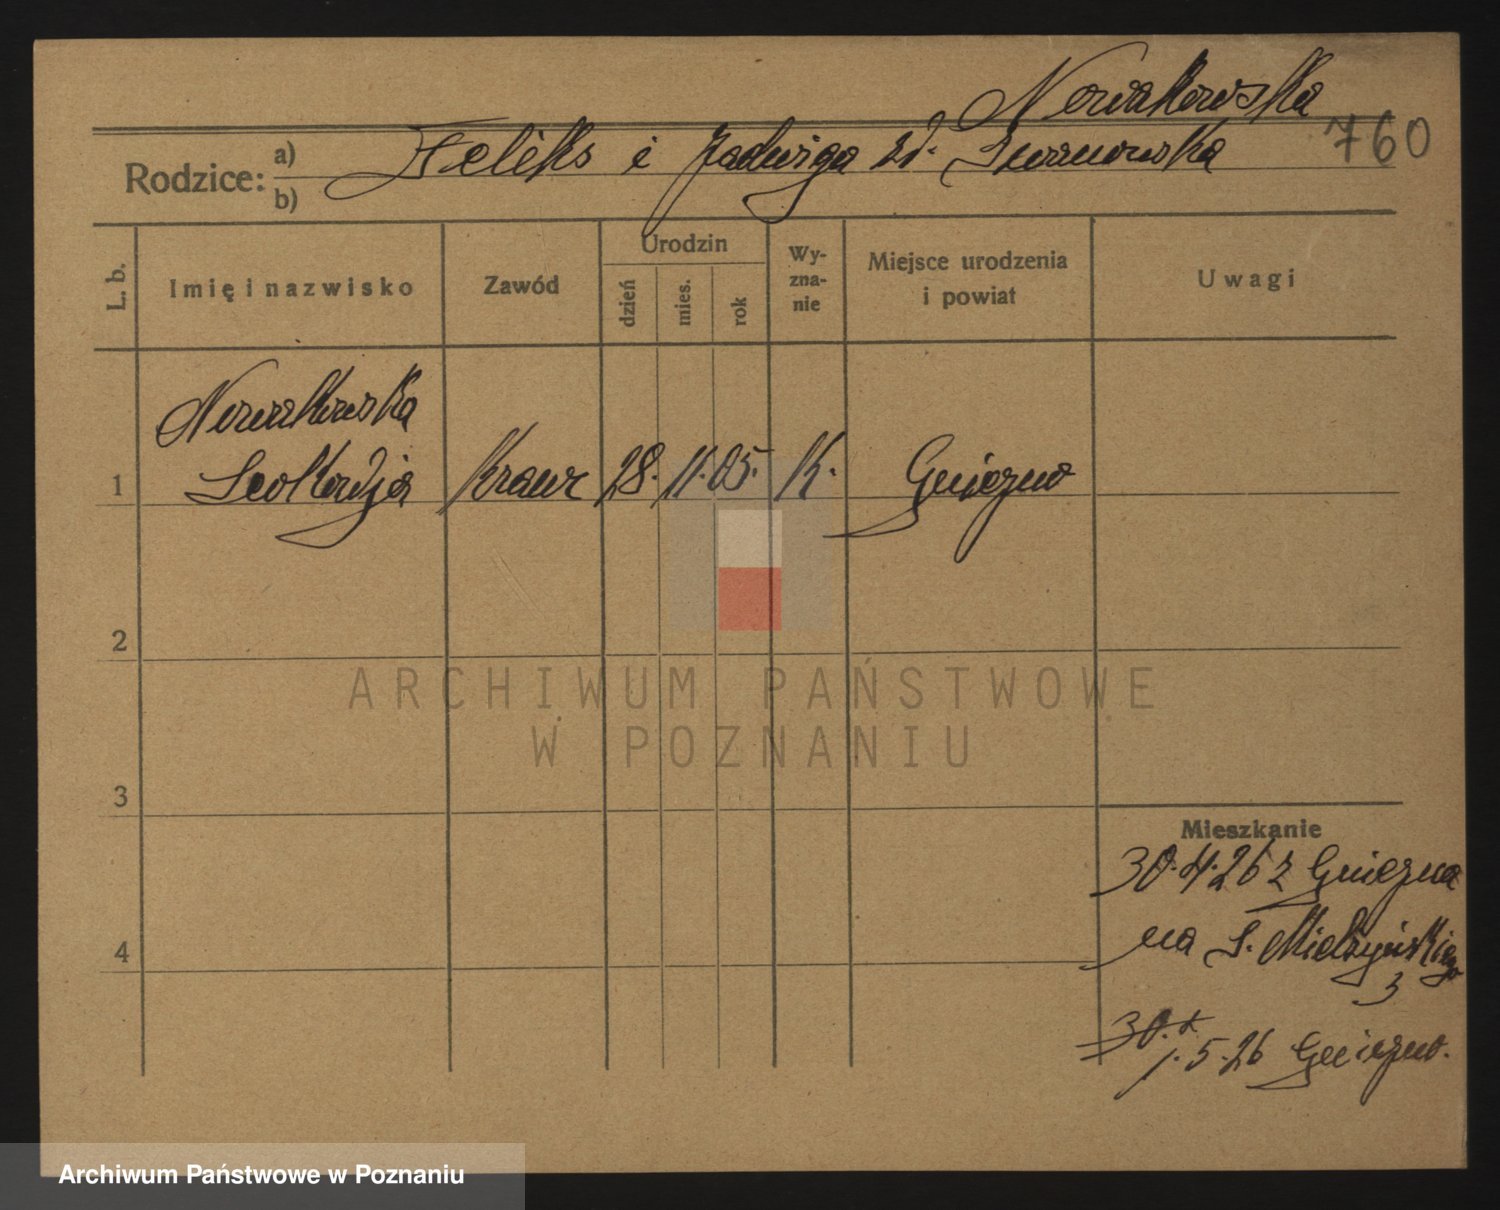 Nowakowska
760
Rodzice: a) b)
Feliks i Jadwiga zd. Iwanowska
L. b.
Imię i nazwisko
Zawód
Urodzin
dzień
mies.
rok
Wy-
zna-
nie
Miejsce urodzenia
i powiat
Uwagi
Nowakowska
1 Leokadja Krawc 28. 11. 05. K. Gniezno
2
ARCHIWUM PAŃSTWOWE
W POZNANIU
3
Mieszkanie
30.4.26 z Gniezna
4
na S. Mielżyńskiego
3
30.
1.5.26 Gniezno.
Archiwum Państwowe w Poznaniu